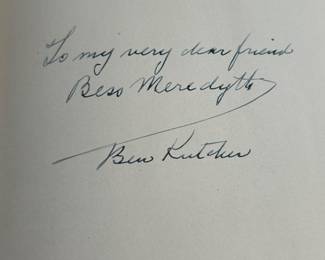 To my very dear friend
Bess Meredyth
Ben Kutcher